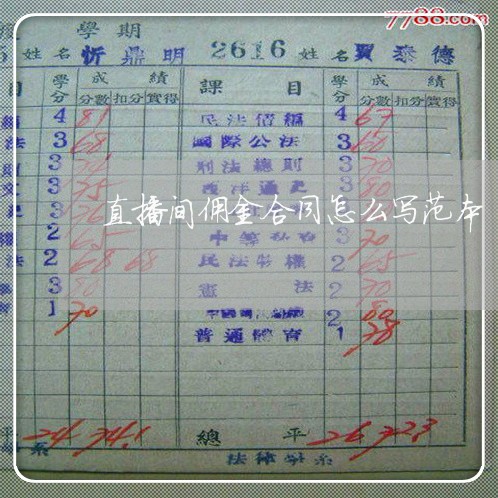 7788.com
學期
姓名 忻鼎明 2616 姓名 賈泰德
目 學分 成績 課目 學分 成績
分數 扣分 實得 分數 扣分 實得
4 81 民法債編 4 67
法 3 68 國際公法 3 60
3 刑法總則 3 70
3 75 西洋通史 3 80
直播间佣金合同怎么写范本
2 65 3 70
法 2 68 68 民法物權 2 65
3 80 憲法 2 70
1 70 2 80
普通體育 1 78
平 24 74.1 總平 26 72.3
系 法律學系